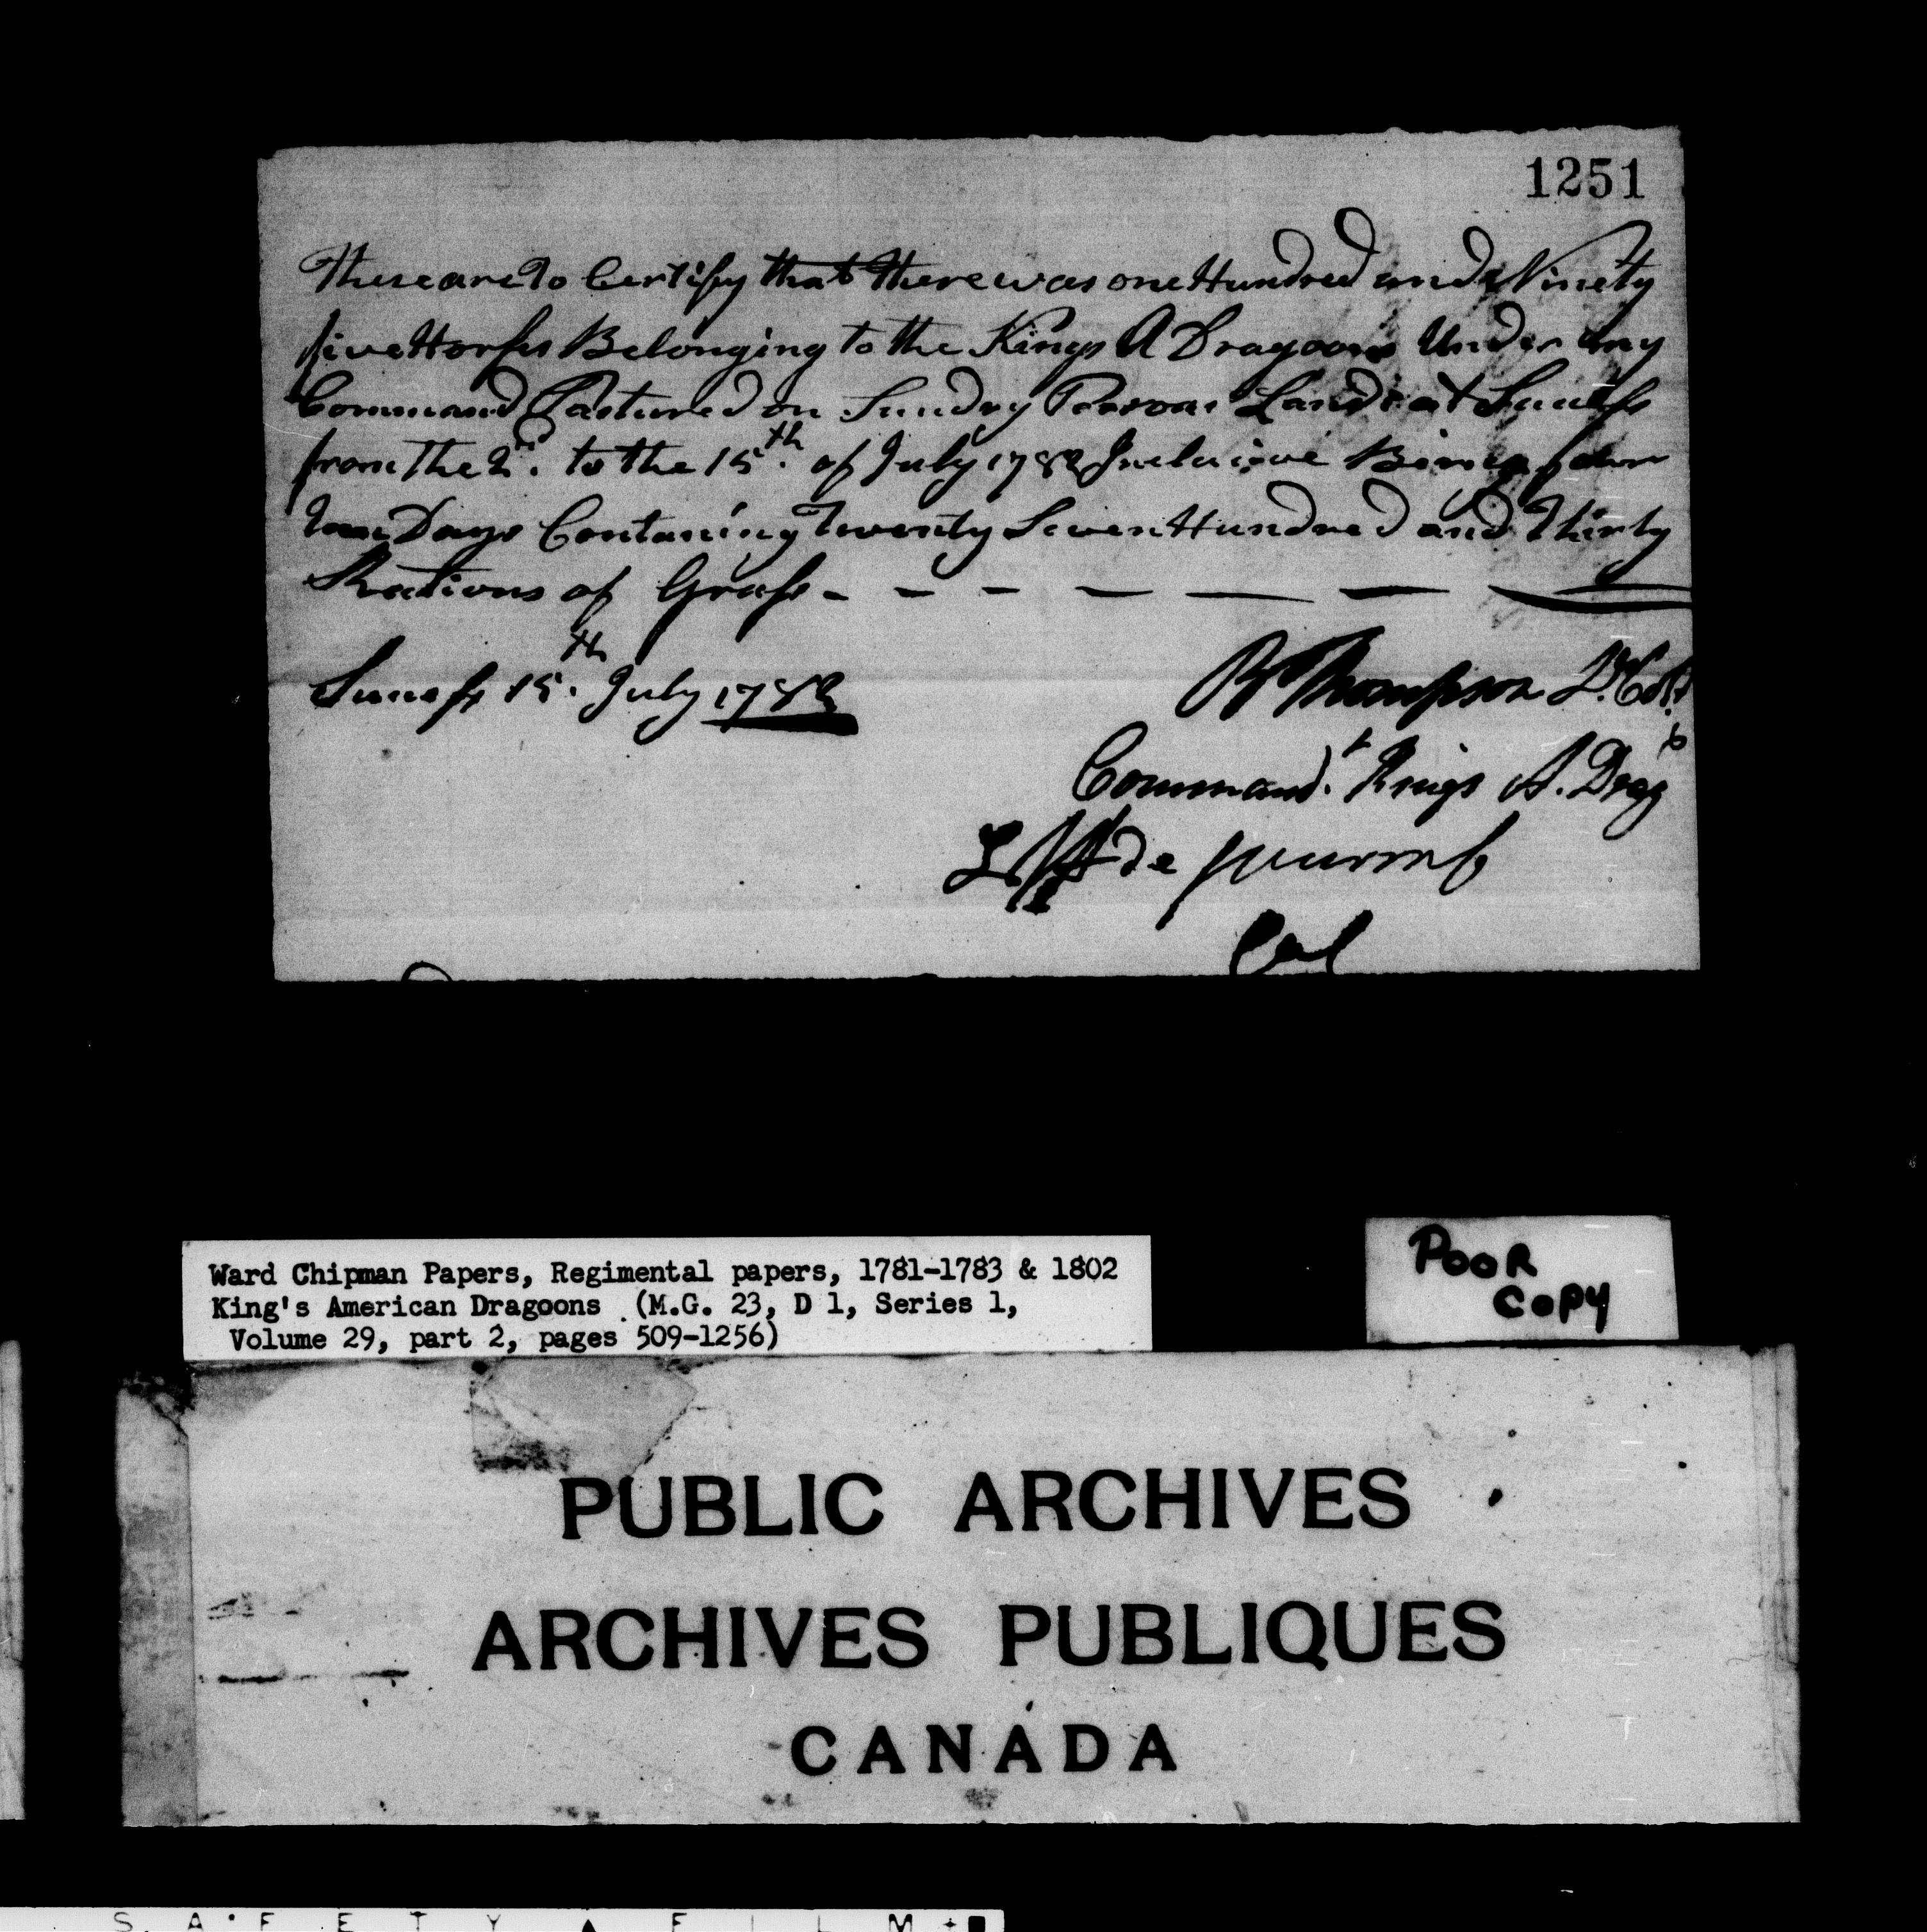 1251
These are To Certify that there was one Hundred and Ninety
five Horses Belonging to the Kings A Dragoons Under my
Command Pastured on Sundry Persons Lands at
from the 2d. to the 15th. of July 1782 Inclusive Being four
teen Days Contaning Twenty Seven Hundred and Thirty
Rations of Grass
15th. July 1782
B Thompson Lt. Col.
Command.t Kings A. Drag
L de Wurmb
Col
Ward Chipman Papers, Regimental papers, 1781-1783 & 1802
King's American Dragoons (M.G. 23, D 1, Series 1,
Volume 29, part 2, pages 509-1256)
POOR
COPY
PUBLIC ARCHIVES
ARCHIVES PUBLIQUES
CANADA
SAFETY FILM